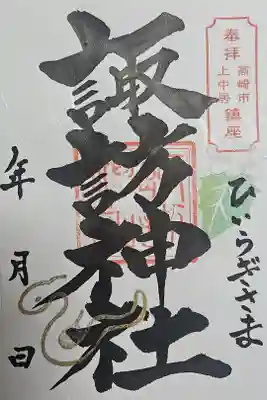 奉拝
高崎市
上中居
鎮座
諏訪神社
ひいらぎさま
年月日